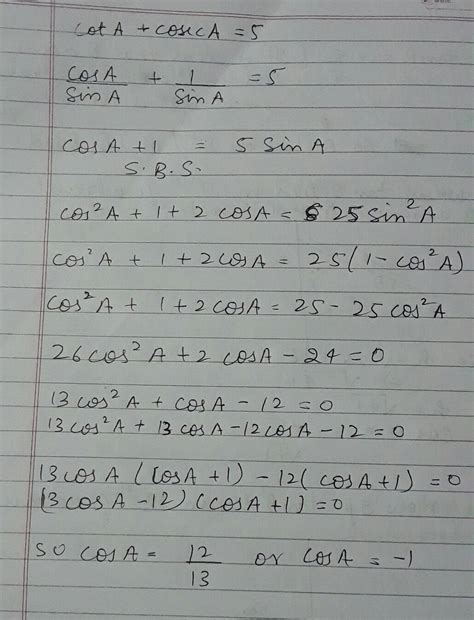 cot A + cosec A = 5
cos A / sin A + 1 / sin A = 5
cos A + 1 = 5 sin A
S.B.S.
cos²A + 1 + 2 cos A = 25 sin²A
cos²A + 1 + 2 cos A = 25(1 - cos²A)
cos²A + 1 + 2 cos A = 25 - 25 cos²A
26 cos²A + 2 cos A - 24 = 0
13 cos²A + cos A - 12 = 0
13 cos²A + 13 cos A - 12 cos A - 12 = 0
13 cos A (cos A + 1) - 12 (cos A + 1) = 0
(3 cos A - 12) (cos A + 1) = 0
so cos A = 12 / 13 or cos A = -1